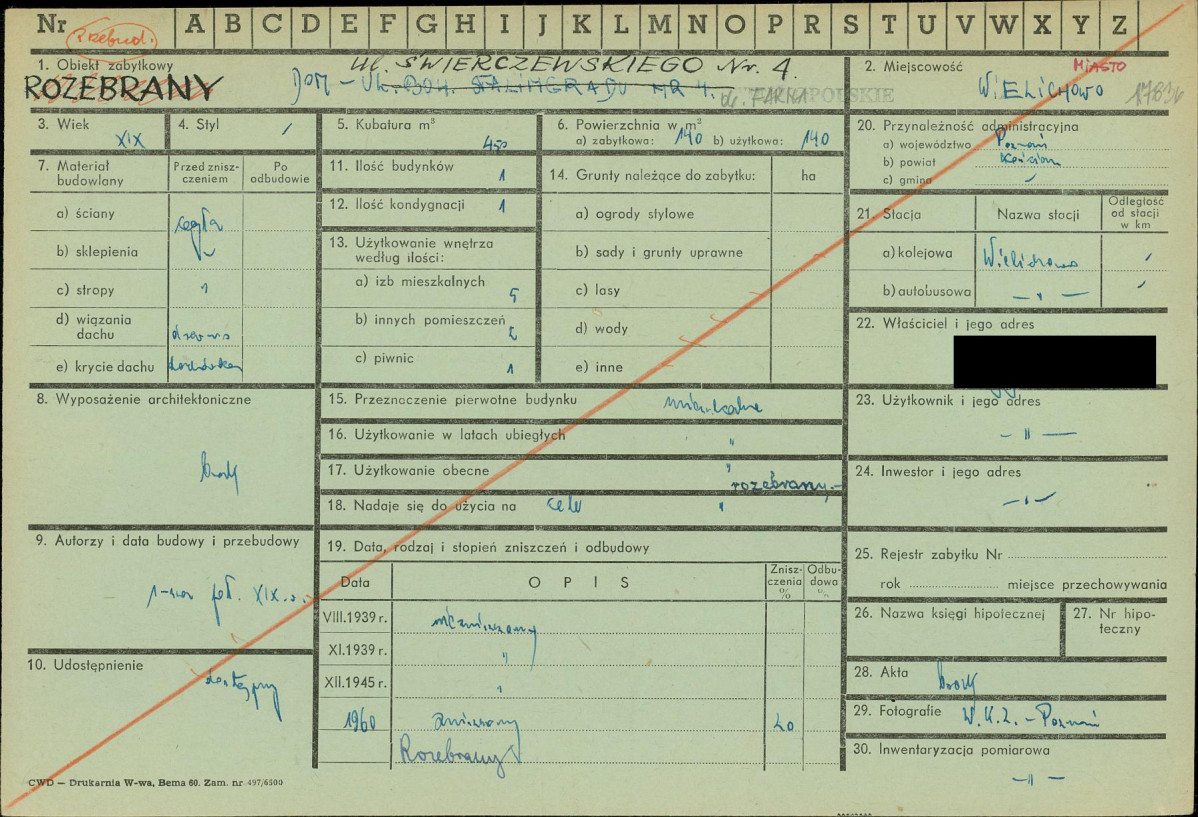 Nr A B C D E F G H I J K L M N O P R S T U V W X Y Z
Przebud.
1. Obiekt zabytkowy
ROZEBRANY
UL. ŚWIERCZEWSKIEGO Nr. 4.
DOM – UL. BOH. STALINGRADU NR 4.
ob. FARNA
2. Miejscowość
MIASTO
WIELICHOWO
1783
3. Wiek
XIX
4. Styl /
5. Kubatura m³
450
6. Powierzchnia w m²
a) zabytkowa: 140 b) użytkowa: 140
20. Przynależność administracyjna
a) województwo Poznań
b) powiat Kościan
c) gmina
7. Materiał budowlany
Przed znisz-czeniem
Po odbudowie
a) ściany cegła
b) sklepienia
c) stropy "
d) wiązania dachu drewno
e) krycie dachu dachówka
11. Ilość budynków 1
12. Ilość kondygnacji 1
13. Użytkowanie wnętrza
według ilości:
a) izb mieszkalnych 5
b) innych pomieszczeń
c) piwnic 1
14. Grunty należące do zabytku: ha
a) ogrody stylowe
b) sady i grunty uprawne
c) lasy
d) wody
e) inne
21. Stacja
Nazwa stacji
Odległość od stacji w km
a) kolejowa Wielichowo /
b) autobusowa — " — /
22. Właściciel i jego adres
8. Wyposażenie architektoniczne
brak
15. Przeznaczenie pierwotne budynku mieszkalne
16. Użytkowanie w latach ubiegłych "
17. Użytkowanie obecne "
rozebrany.-
18. Nadaje się do użycia na cele "
23. Użytkownik i jego adres
— " —
24. Inwestor i jego adres
— " —
9. Autorzy i data budowy i przebudowy
1-sza poł. XIX w.
19. Data, rodzaj i stopień zniszczeń i odbudowy
Data
OPIS
Znisz-czenia %
Odbu-dowa %
VIII.1939 r. niezniszczony
XI.1939 r. "
XII.1945 r. "
1960 zniszczony 20
Rozebrany
25. Rejestr zabytku Nr
rok miejsce przechowywania
26. Nazwa księgi hipotecznej
27. Nr hipo-teczny
10. Udostępnienie
dostępny
28. Akta brak
29. Fotografie W.K.Z. – Poznań
30. Inwentaryzacja pomiarowa
— " —
CWD — Drukarnia W-wa, Bema 60. Zam. nr 497/6500